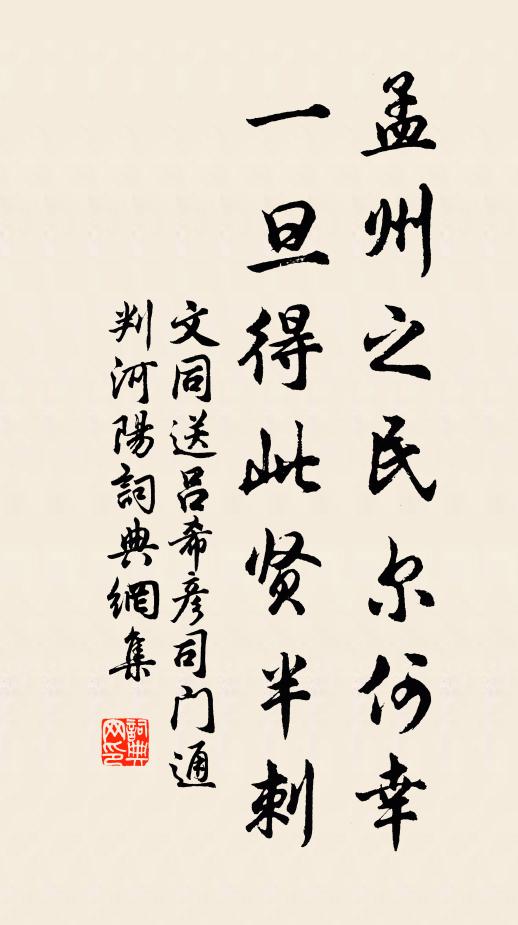 孟州之民尔何幸
一旦得此贤半刺
文同送吕希彦司门通
判河陽詞典網集
詞典網印